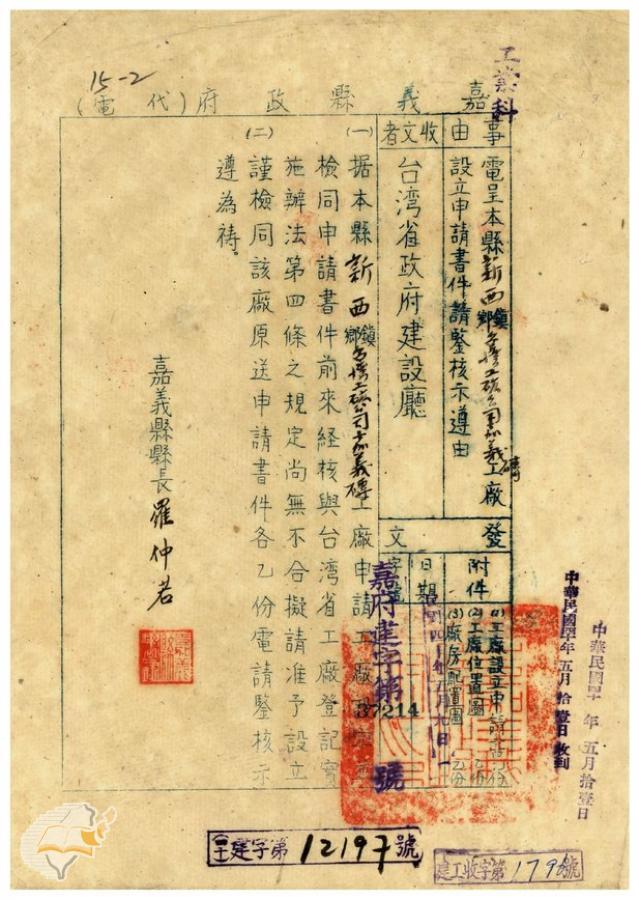 工業科
15-2
嘉義縣政府(代電)
事由
電呈本縣新西鄉鎮台灣工礦公司嘉義磚工廠
設立申請書件請鑒核示遵由
收文者
台湾省政府建設廳
發文
附件
(1)工廠設立申請書 乙份
(2)工廠位置圖 乙份
(3)廠房配置圖 乙份
日期
字號
嘉府建字第37214號
(一)据本縣新西鄉鎮台灣工礦公司嘉義磚工廠申請工廠
檢同申請書件前來経核與台湾省工廠登記實
施辦法第四條之規定尚無不合擬請准予設立
(二)謹檢同該廠原送申請書件各乙份電請鑒核示
遵為禱。
嘉義縣縣長羅仲若
中華民國 年五月拾壹日收到
中華民國 年五月拾壹日
建字第12197號
建工收字第179 號